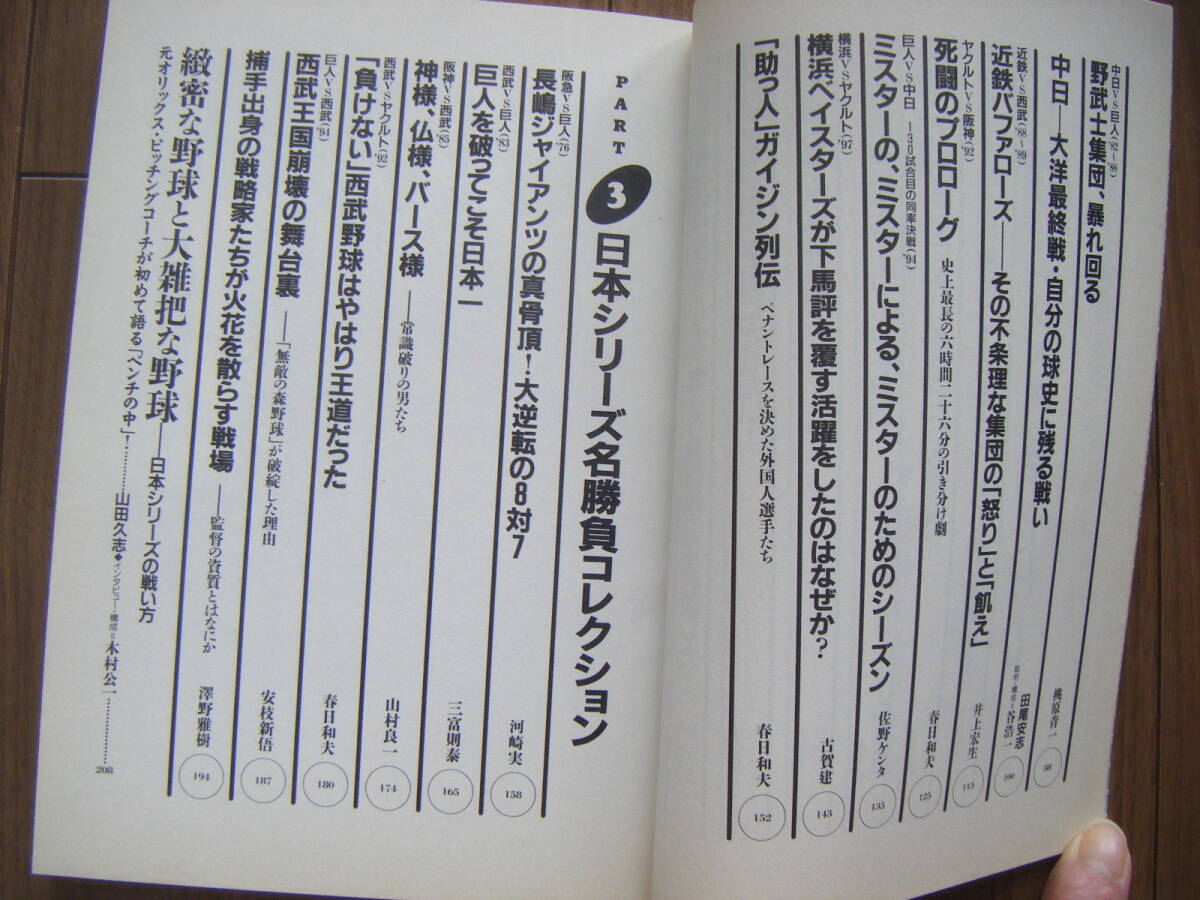 中日VS巨人('82〜'88)
野武士集団、暴れ回る
桃原青一
88
中日——大洋最終戦・自分の球史に残る戦い
田尾安志
取材・構成=谷浩一
100
近鉄VS西武('88〜'89)
近鉄バファローズ——その不条理な集団の「怒り」と「飢え」
井上宏生
113
ヤクルトVS阪神('92)
死闘のプロローグ 史上最長の六時間二十六分の引き分け劇
春日和夫
125
巨人VS中日 130試合目の同率決戦('94)
ミスターの、ミスターによる、ミスターのためのシーズン
佐野ケンタ
135
横浜VSヤクルト('97)
横浜ベイスターズが下馬評を覆す活躍をしたのはなぜか?
古賀建
143
「助っ人」ガイジン列伝 ペナントレースを決めた外国人選手たち
春日和夫
152
PART 3 日本シリーズ名勝負コレクション
阪急VS巨人('76)
長嶋ジャイアンツの真骨頂!大逆転の8対7
河崎実
158
西武VS巨人('83)
巨人を破ってこそ日本一
三富則泰
165
阪神VS西武('85)
神様、仏様、バース様——常識破りの男たち
山村良一
174
西武VSヤクルト('92)
「負けない」西武野球はやはり王道だった
春日和夫
180
巨人VS西武('94)
西武王国崩壊の舞台裏——「無敵の森野球」が破綻した理由
安枝新悟
187
捕手出身の戦略家たちが火花を散らす戦場——監督の資質とはなにか
澤野雅樹
194
緻密な野球と大雑把な野球——日本シリーズの戦い方
元オリックス・ピッチングコーチが初めて語る「ベンチの中」!………山田久志◆インタビュー・構成=木村公一………208